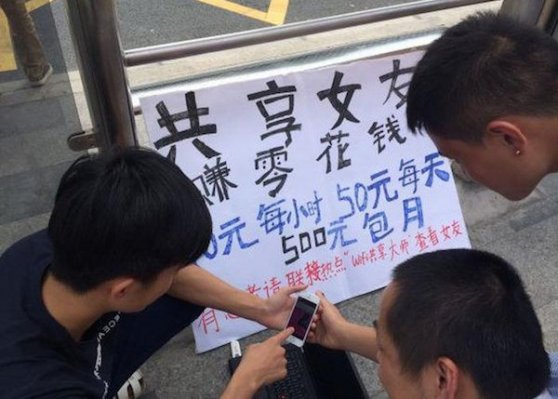 共享女友
赚零花钱
0元每小时 50元每天
500元包月
有意者请联接热点"Wifi共享大师"查看女友